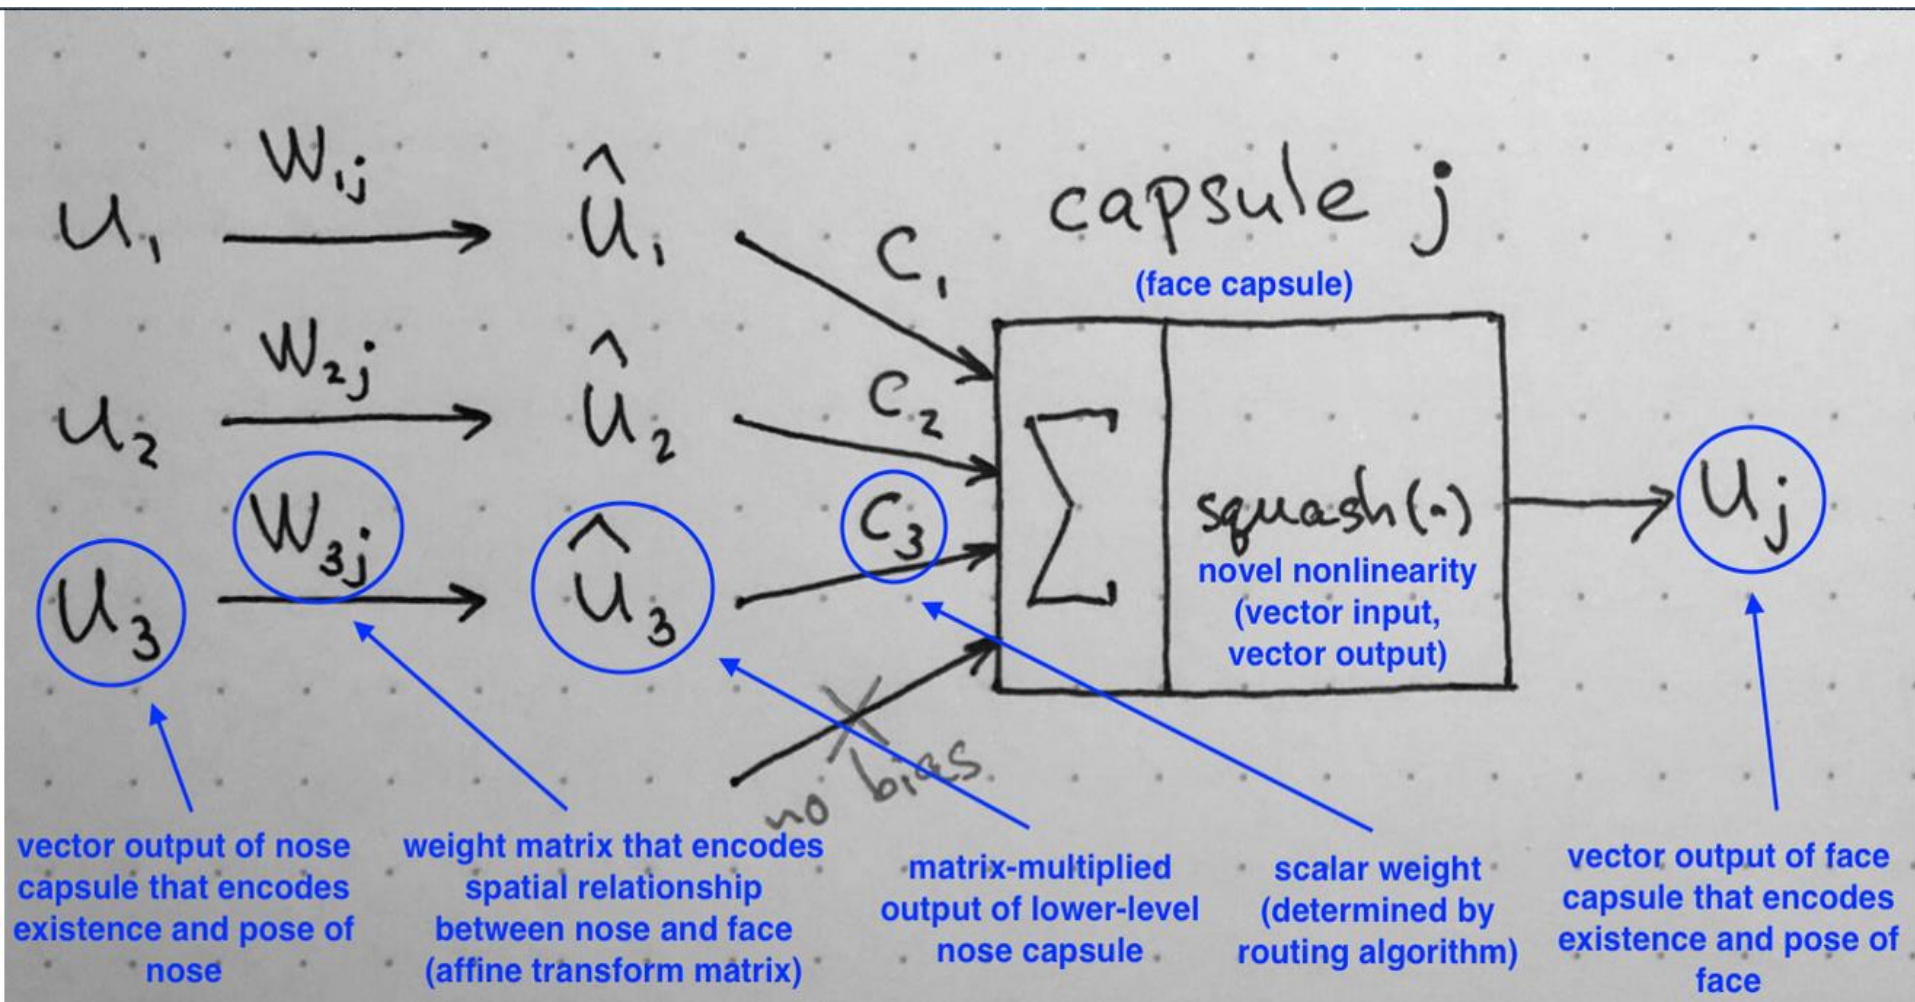 W1j
û1
u1
C1
capsule j
(face capsule)
W2j
u2
û2
C2
W3j
u3
û3
C3
Σ
squash(·)
novel nonlinearity
(vector input,
vector output)
uj
no bias
vector output of nose
capsule that encodes
existence and pose of
nose
weight matrix that encodes
spatial relationship
between nose and face
(affine transform matrix)
matrix-multiplied
output of lower-level
nose capsule
scalar weight
(determined by
routing algorithm)
vector output of face
capsule that encodes
existence and pose of
face